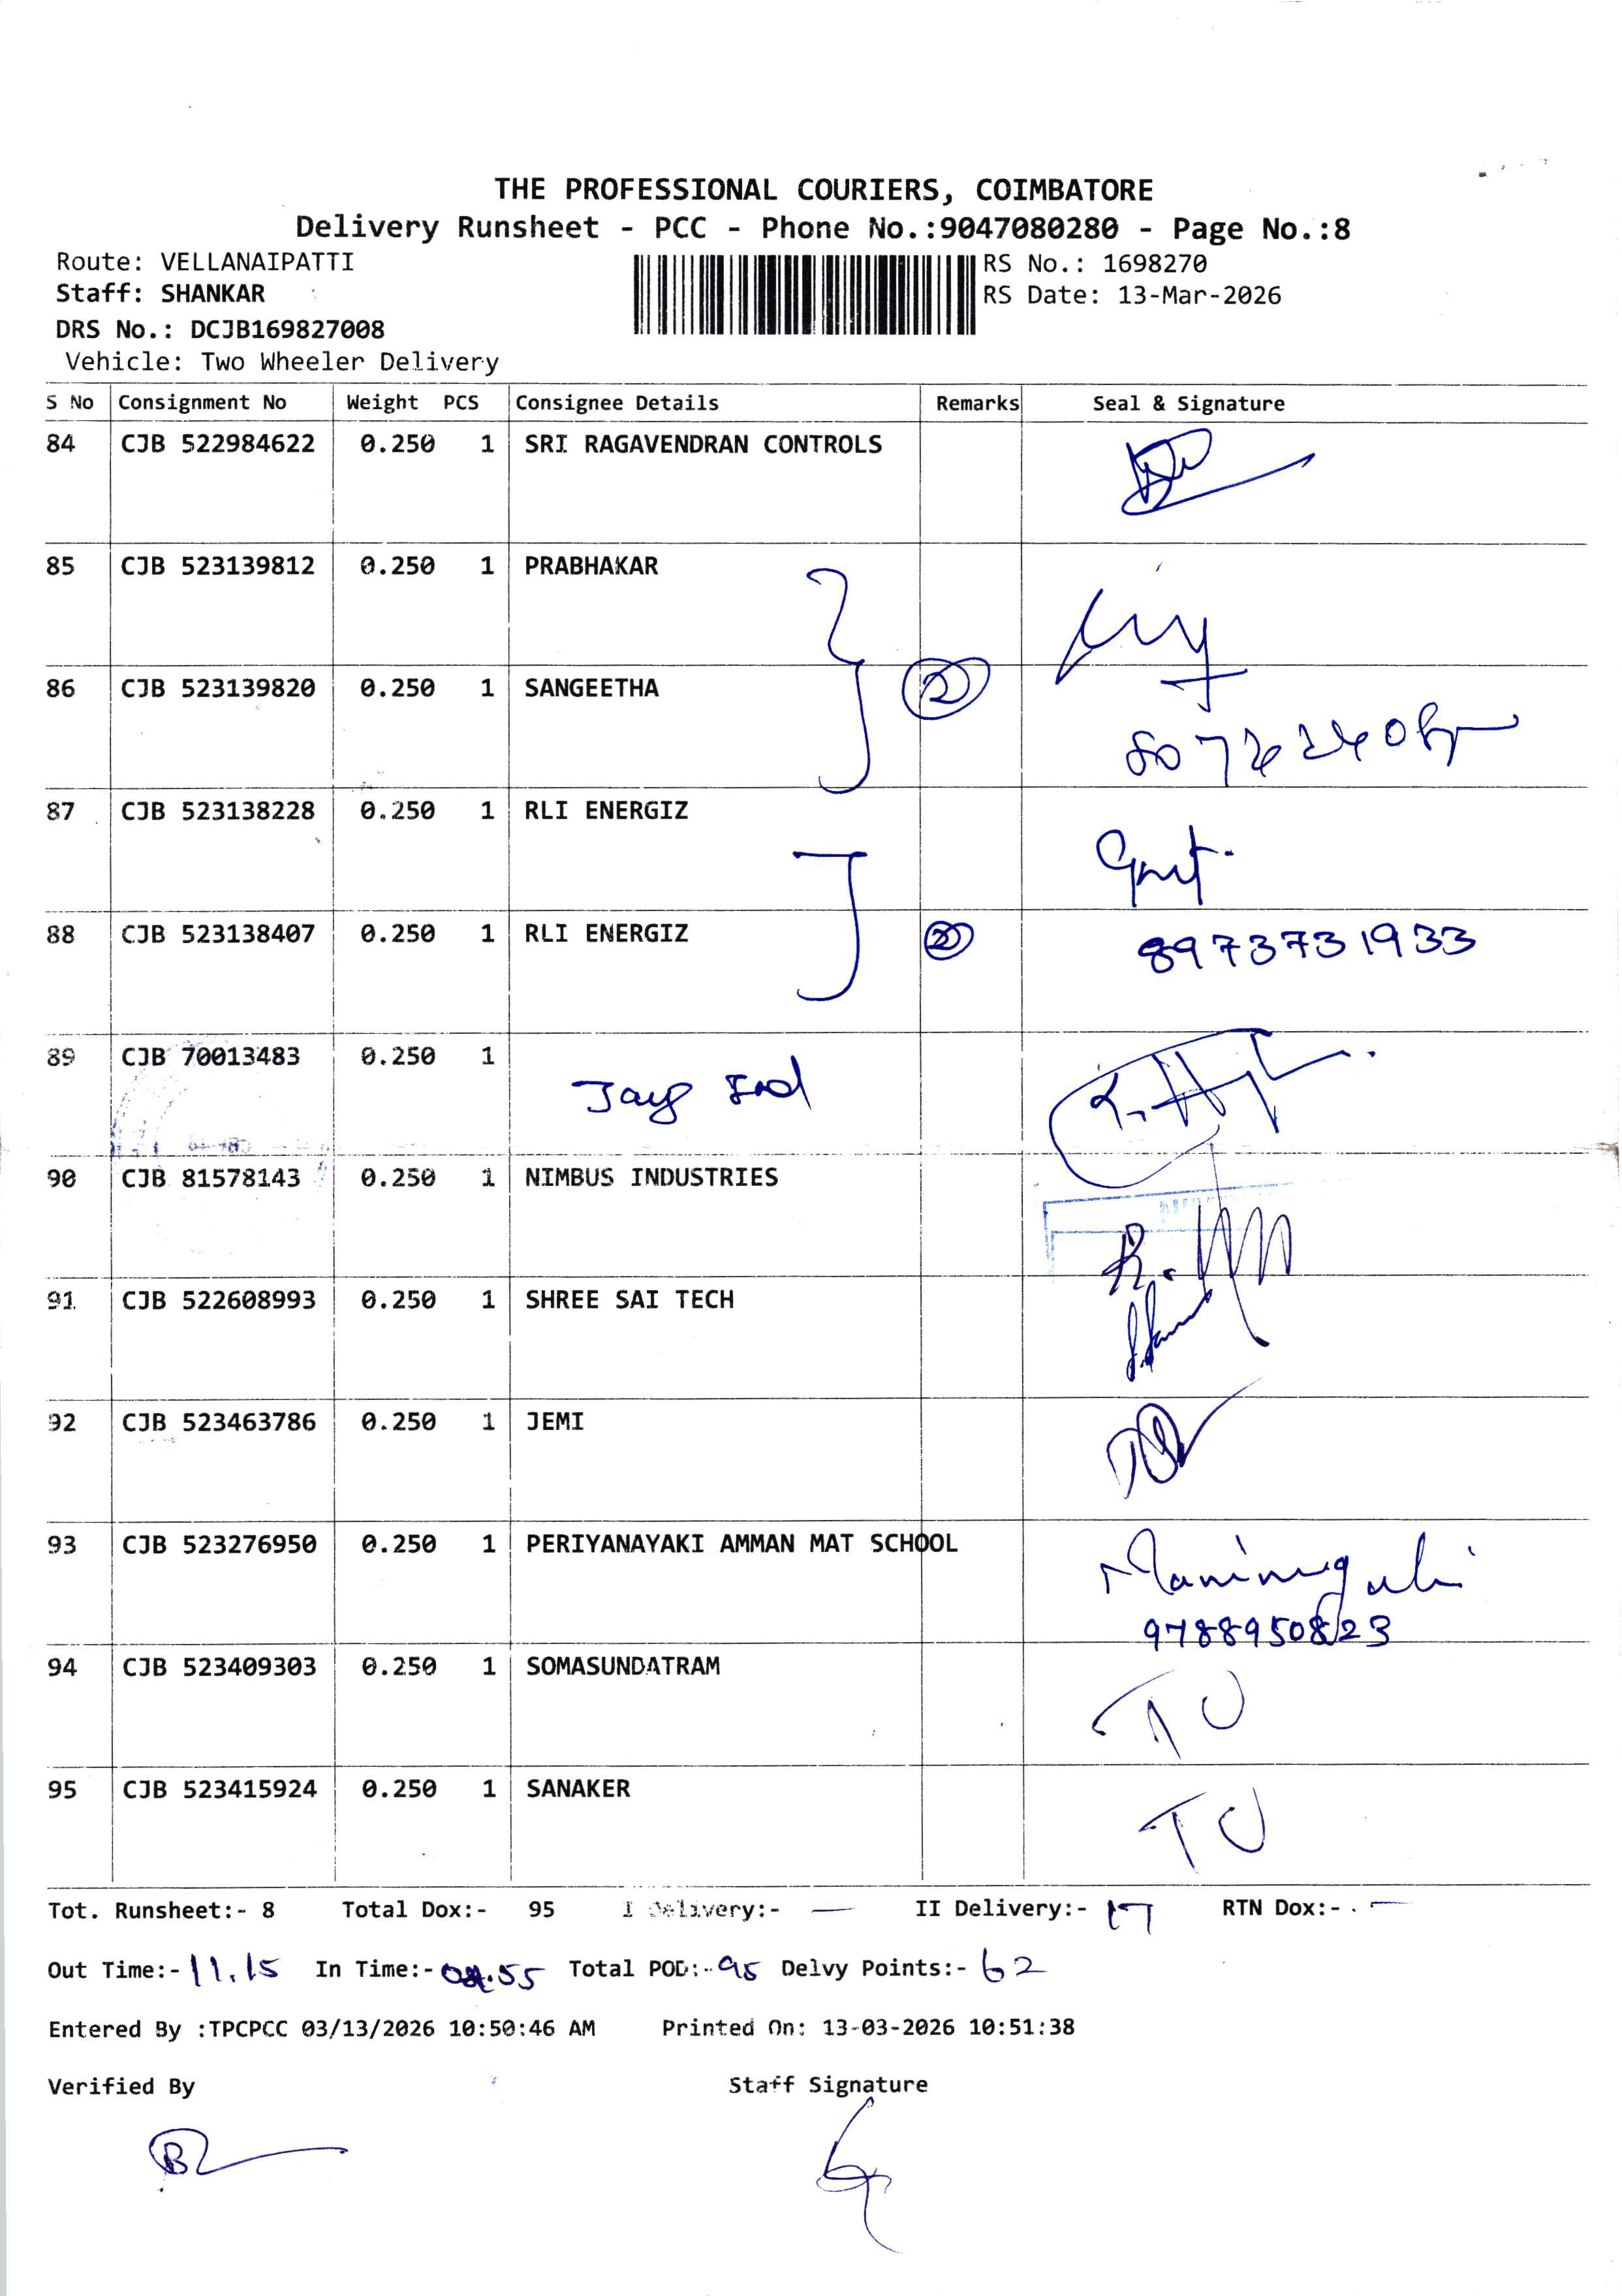 THE PROFESSIONAL COURIERS, COIMBATORE
Delivery Runsheet - PCC - Phone No.:9047080280 - Page No.:8
Route: VELLANAIPATTI
RS No.: 1698270
Staff: SHANKAR
RS Date: 13-Mar-2026
DRS No.: DCJB169827008
Vehicle: Two Wheeler Delivery
S No Consignment No Weight PCS Consignee Details Remarks Seal & Signature
84 CJB 522984622 0.250 1 SRI RAGAVENDRAN CONTROLS
85 CJB 523139812 0.250 1 PRABHAKAR
86 CJB 523139820 0.250 1 SANGEETHA 2
87 CJB 523138228 0.250 1 RLI ENERGIZ
88 CJB 523138407 0.250 1 RLI ENERGIZ 2 8973731933
89 CJB 70013483 0.250 1 Jay Ind
90 CJB 81578143 0.250 1 NIMBUS INDUSTRIES
91 CJB 522608993 0.250 1 SHREE SAI TECH
92 CJB 523463786 0.250 1 JEMI
93 CJB 523276950 0.250 1 PERIYANAYAKI AMMAN MAT SCHOOL
9788950823
94 CJB 523409303 0.250 1 SOMASUNDATRAM TU
95 CJB 523415924 0.250 1 SANAKER TU
Tot. Runsheet:- 8 Total Dox:- 95 I Delivery:- — II Delivery:- 17 RTN Dox:- —
Out Time:- 11.15 In Time:- Total POD:- 95 Delvy Points:- 62
Entered By :TPCPCC 03/13/2026 10:50:46 AM Printed On: 13-03-2026 10:51:38
Verified By Staff Signature